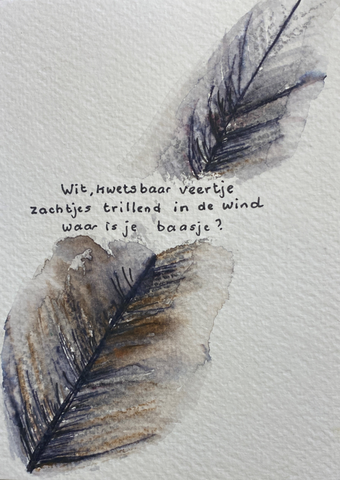 Wit, kwetsbaar veertje
zachtjes trillend in de wind
waar is je baasje?